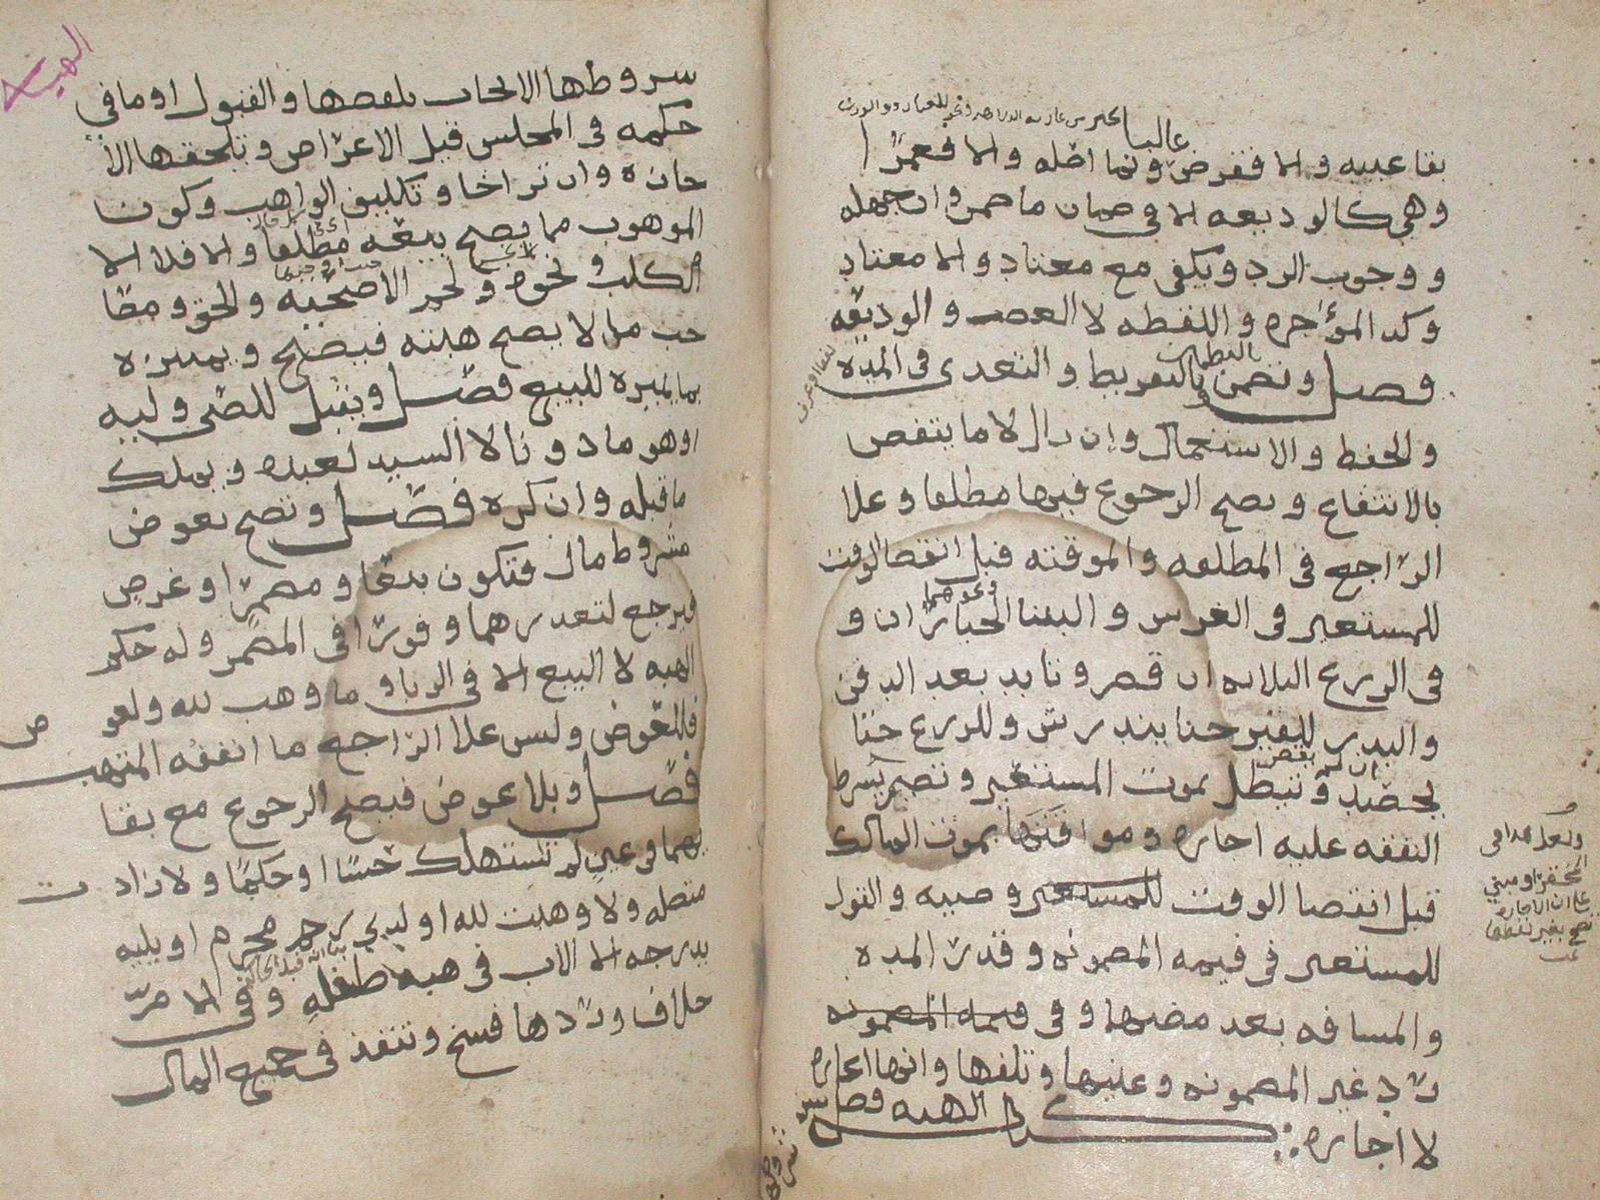 غالبا
بقا عينه والا فقرض ونما اصله والا فعمرا
وهي كالوديعه الا في ضمان ما ضمن وان جهله
ووجوب الرد ويكفي مع معتاد والا معتاد
وكذا المؤجره واللقطه لا الغصب والوديعه
فصل وتضمن بالتفريط والتعدي في المده
والحفظ والاستعمال وان زال لا ما ينقص
بالانتفاع ويصح الرجوع فيها مطلقا وعلا
الراجع في المطلقه والموقته قبل انقضا الوقت
للمستعير في الغرس والبنا ونحوهما الخياران و
في الزرع الثلاثه ان قصر وتابد بعد الدفن
والبذر للقبر حتا يندرس وللزرع حتا
يحصد ان لم يقصر وتبطل بموت المستعير وتصير بشرط
النفقه عليه اجاره وموافقتها بموت المالك
قبل انقضا الوقت وصيه والقول
للمستعير في قيمه المضمونه وقدر المده
والمسافه بعد مضيها وفي
رد غير المضمونه وعينها وتلفها وانها اعاره
لا اجاره كتاب الهبه فصل
شروطها
الهبه
شروطها الايجاب بلفظها والقبول او ما في
حكمه في المجلس قبل الاعراض وتلحقها الا
جازه وان تراخا وتكليف الواهب وكون
الموهوب مما يصح بيعه مطلقا والا فلا الا
الكلب ونحوه ولحم الاضحيه والحق ومصا
حب ما لا يصح هبته فيصح وتمييزه
بما يميزه للبيع فصل ويقبل للصبي وليه
او هو ماذونا لا السيد لعبده ويملك
ما قبله وان كره فصل وتصح بعوض
مشروط مال فتكون بيعا ومضمرا او غرض
فيرجع لتعذرهما وفورا في المضمر وله حكم
الهبه لا البيع الا في الربا وما وهب لله ولعوض
فللعوض وليس علا الراجع ما انفقه المتهب
فصل وبلا عوض فيصح الرجوع مع بقا
يهما في عين لم تستهلك حسا او حكما ولا زادت
متصله ولا وهبت لله او لذي رحم محرم او يليه
بدرجه الا الاب في هبه طفله وفي الام
خلاف وردها فسخ وتنفذ في جميع المال